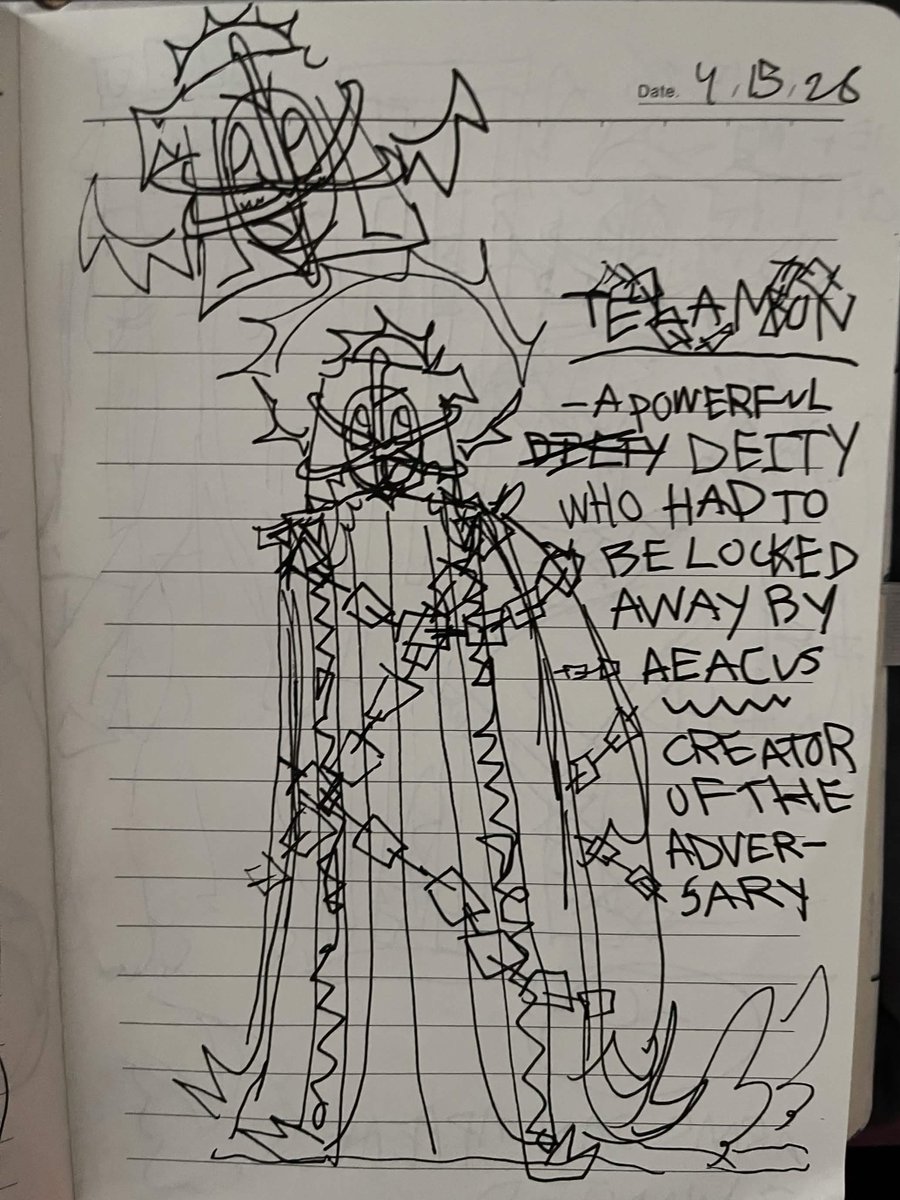 Date. 4.15.26
TELAMON
- A POWERFUL
DEITY
WHO HAD TO
BE LOCKED
AWAY BY
AEACUS
CREATOR
OF THE
ADVER-
SARY